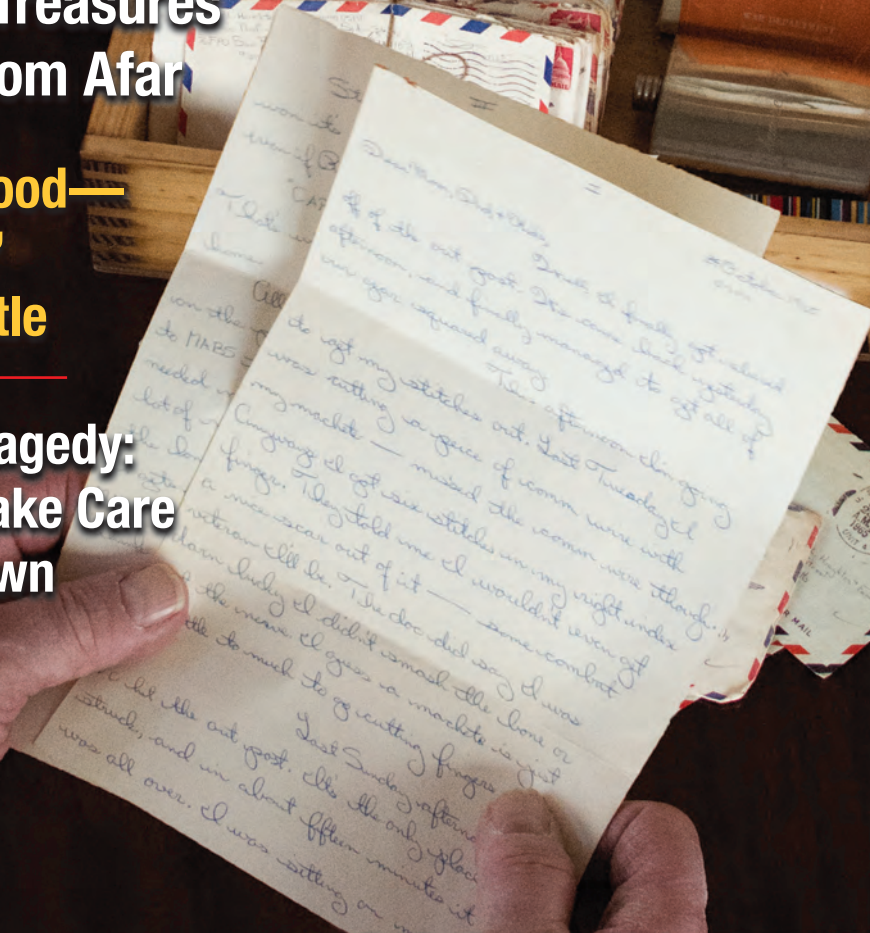 Treasures
om Afar
ood—
’
tle
agedy:
ake Care
wn
WAR DEPARTMENT
R MAIL
October
Dear Mom, Dad &
I finally got relieved
off of the out post. We came back yesterday
afternoon, and finally managed to get all of
our gear squared away.
This afternoon I'm going
to get my stitches out. Last Tuesday I
was cutting a piece of comm wire with
my machete — missed the comm wire though.
Anyways I got six stitches in my right index
finger. They told me I wouldn't even get
a nice scar out of it — some combat
veteran I'll be. The doc did say I was
darn lucky I didn't smash the bone or
the nerve. I guess a machete is just
ttle to much to go cutting fingers
Last Sunday afterno
hit the out post. It's the only plac
struck, and in about fifteen minutes it
was all over. I was sitting on
won't
even if
That's
home.
on the
to MABS
needed
lot of
the